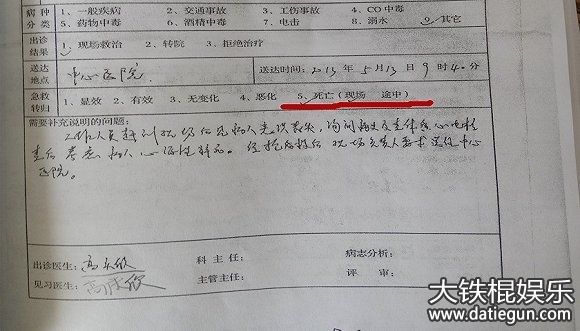 病种 1、一般疾病 2、交通事故 3、工伤事故 4、CO中毒
分类 5、药物中毒 6、酒精中毒 7、电击 8、溺水 9、其它
出诊结果 1、现场救治 2、转院 3、拒绝治疗
送达地点 中心医院 送达时间:2013年5月13日9时40分
急救转归 1、显效 2、有效 3、无变化 4、恶化 5、死亡(现场 途中)
需要补充说明的问题:
工作人员赶到现场后见病人意识丧失,询问病史及查体后心电检
查后考虑病人心源性猝死。经抢救后 现场负责人要求送往中心
医院。
科主任: 病志分析:
出诊医生:
见习医生: 主管主任: 评审:
大铁棍娱乐
datiegun.com